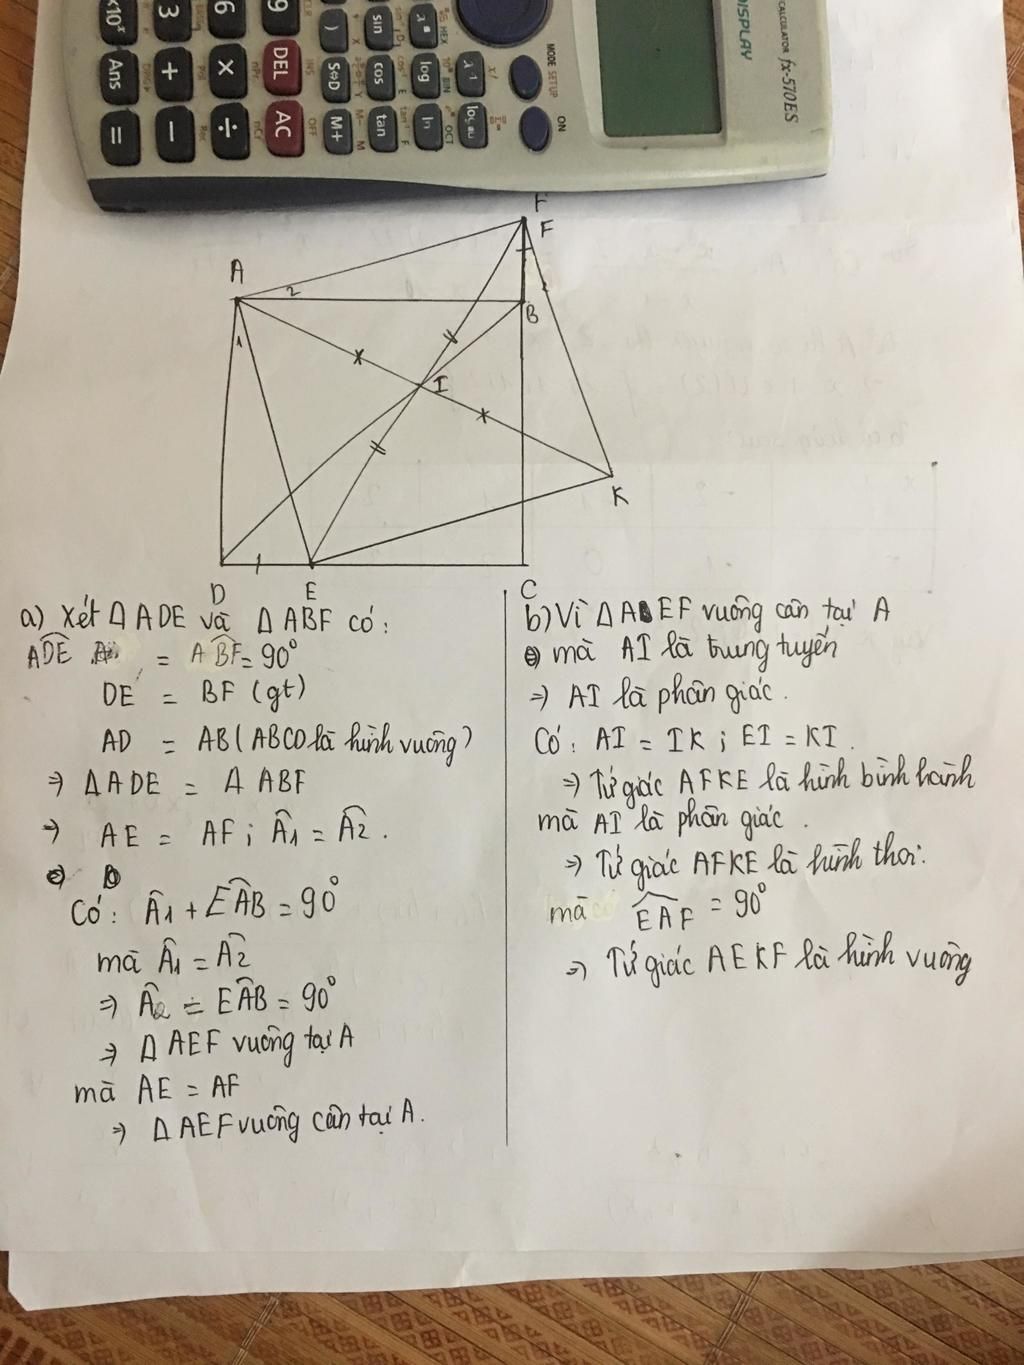 CALCULATOR fx-570ES
DISPLAY
MODE SETUP
ON
x10ˣ
3
6
9
)
sin
Ans
+
×
DEL
S⇔D
cos
log
x⁻¹
=
−
÷
AC
M+
tan
ln
F
F
A
2
1
B
I
K
D
E
C
a) Xét Δ ADE và Δ ABF có:
ADE = ABF = 90°
DE = BF (gt)
AD = AB (ABCD là hình vuông)
⇒ Δ ADE = Δ ABF
⇒ AE = AF ; Â1 = Â2 .
Có: Â1 + EÂB = 90°
mà Â1 = Â2
⇒ Â2 + EÂB = 90°
⇒ Δ AEF vuông tại A
mà AE = AF
⇒ Δ AEF vuông cân tại A.
b) Vì Δ AEF vuông cân tại A
mà AI là trung tuyến
⇒ AI là phân giác .
Có: AI = IK ; EI = KI .
⇒ Tứ giác AFKE là hình bình hành
mà AI là phân giác .
⇒ Tứ giác AFKE là hình thoi.
mà EÂF = 90°
⇒ Tứ giác AEKF là hình vuông